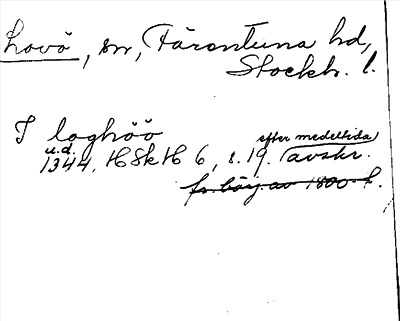 Lovö, sn, Färentuna hd,
Stockh. l.
I loghöö
u.d. efter medeltida
1344, HSkH 6, s. 19. avskr.
fr. börj. av 1800-t.